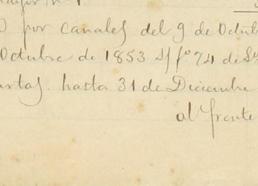 por canales del 9 de Octub
Octubre de 1853 S/ fº 74 de
hasta 31 de Diciembre
al frente